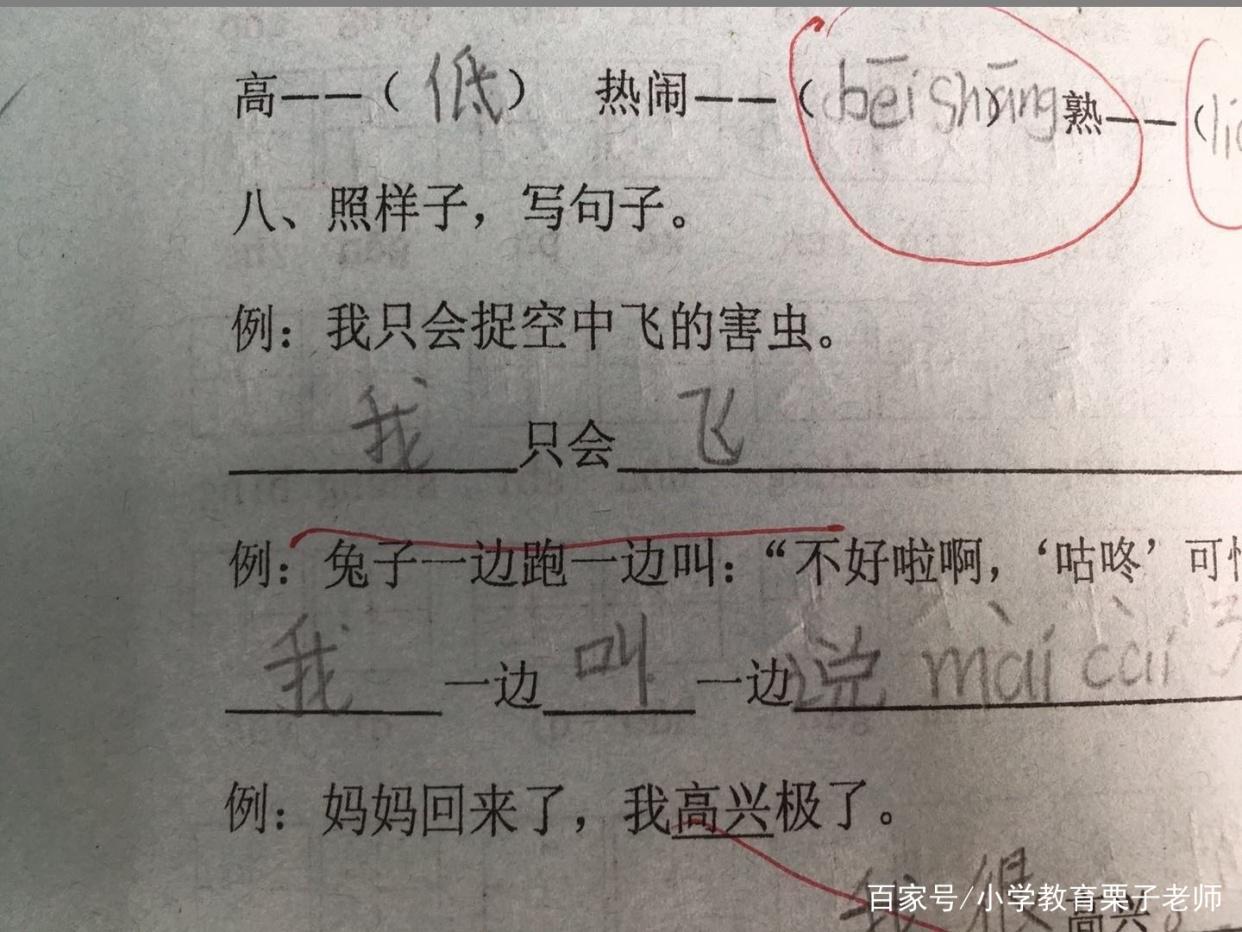 高——（低） 热闹——（bēi shāng）熟——（
八、照样子，写句子。
例：我只会捉空中飞的害虫。
我只会飞
例：兔子一边跑一边叫：“不好啦啊，‘咕咚’可
我一边叫一边说 mài cài
例：妈妈回来了，我高兴极了。
我很高兴。
百家号/小学教育栗子老师